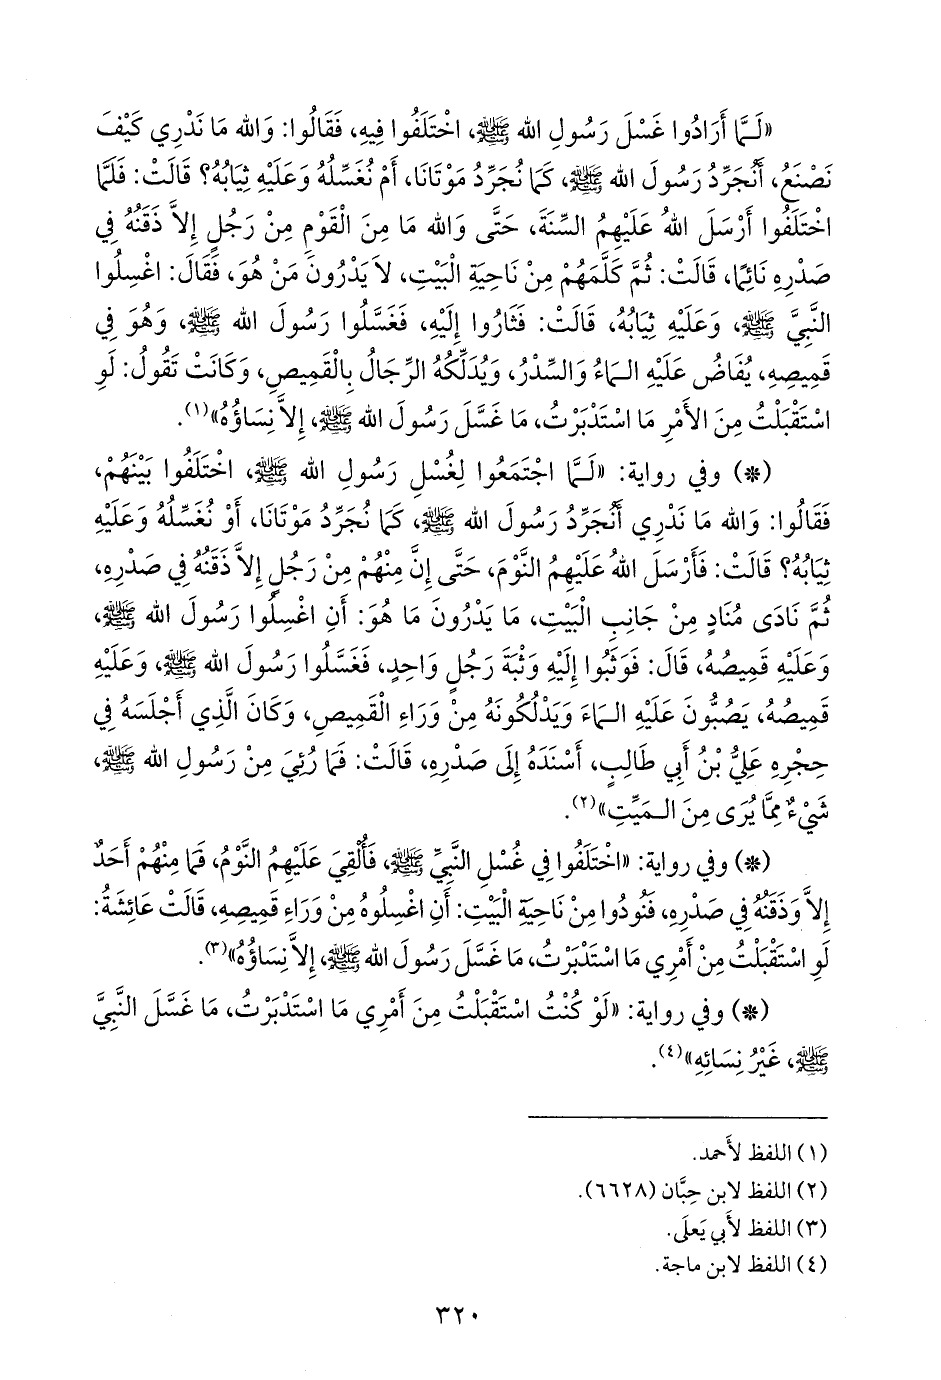 «لَـمَّا أَرَادُوا غَسْلَ رَسُولِ الله ﷺ، اخْتَلَفُوا فِيهِ، فَقَالُوا: وَالله مَا نَدْرِي كَيْفَ
نَصْنَعُ، أَنُجَرِّدُ رَسُولَ الله ﷺ، كَمَا نُجَرِّدُ مَوْتَانَا، أَمْ نُغَسِّلُهُ وَعَلَيْهِ ثِيَابُهُ؟ قَالَتْ: فَلَمَّا
اخْتَلَفُوا أَرْسَلَ اللهُ عَلَيْهِمُ السِّنَةَ، حَتَّى وَالله مَا مِنَ الْقَوْمِ مِنْ رَجُلٍ إِلاَّ ذَقَنُهُ فِي
صَدْرِهِ نَائِمًا، قَالَتْ: ثُمَّ كَلَّمَهُمْ مِنْ نَاحِيَةِ الْبَيْتِ، لاَ يَدْرُونَ مَنْ هُوَ، فَقَالَ: اغْسِلُوا
النَّبِيَّ ﷺ، وَعَلَيْهِ ثِيَابُهُ، قَالَتْ: فَثَارُوا إِلَيْهِ، فَغَسَّلُوا رَسُولَ الله ﷺ، وَهُوَ فِي
قَمِيصِهِ، يُفَاضُ عَلَيْهِ الـمَاءُ وَالسِّدْرُ، وَيُدَلِّكُهُ الرِّجَالُ بِالْقَمِيصِ، وَكَانَتْ تَقُولُ: لَوِ
اسْتَقْبَلْتُ مِنَ الأَمْرِ مَا اسْتَدْبَرْتُ، مَا غَسَّلَ رَسُولَ الله ﷺ، إِلاَّ نِسَاؤُهُ»(١).
(*) وفي رواية: «لَـمَّا اجْتَمَعُوا لِغُسْلِ رَسُولِ الله ﷺ، اخْتَلَفُوا بَيْنَهُمْ،
فَقَالُوا: وَالله مَا نَدْرِي أَنُجَرِّدُ رَسُولَ الله ﷺ، كَمَا نُجَرِّدُ مَوْتَانَا، أَوْ نُغَسِّلُهُ وَعَلَيْهِ
ثِيَابُهُ؟ قَالَتْ: فَأَرْسَلَ اللهُ عَلَيْهِمُ النَّوْمَ، حَتَّى إِنَّ مِنْهُمْ مِنْ رَجُلٍ إِلاَّ ذَقَنُهُ فِي صَدْرِهِ،
ثُمَّ نَادَى مُنَادٍ مِنْ جَانِبِ الْبَيْتِ، مَا يَدْرُونَ مَا هُوَ: أَنِ اغْسِلُوا رَسُولَ الله ﷺ،
وَعَلَيْهِ قَمِيصُهُ، قَالَ: فَوَثَبُوا إِلَيْهِ وَثْبَةَ رَجُلٍ وَاحِدٍ، فَغَسَّلُوا رَسُولَ الله ﷺ، وَعَلَيْهِ
قَمِيصُهُ، يَصُبُّونَ عَلَيْهِ الـمَاءَ وَيَدْلُكُونَهُ مِنْ وَرَاءِ الْقَمِيصِ، وَكَانَ الَّذِي أَجْلَسَهُ فِي
حِجْرِهِ عَلِيُّ بْنُ أَبِي طَالِبٍ، أَسْنَدَهُ إِلَى صَدْرِهِ، قَالَتْ: فَمَا رُئِيَ مِنْ رَسُولِ الله ﷺ،
شَيْءٌ مِمَّا يُرَى مِنَ الـمَيِّتِ»(٢).
(*) وفي رواية: «اخْتَلَفُوا فِي غُسْلِ النَّبِيِّ ﷺ، فَأُلْقِيَ عَلَيْهِمُ النَّوْمُ، فَمَا مِنْهُمْ أَحَدٌ
إِلاَّ وَذَقَنُهُ فِي صَدْرِهِ، فَنُودُوا مِنْ نَاحِيَةِ الْبَيْتِ: أَنِ اغْسِلُوهُ مِنْ وَرَاءِ قَمِيصِهِ، قَالَتْ عَائِشَةُ:
لَوِ اسْتَقْبَلْتُ مِنْ أَمْرِي مَا اسْتَدْبَرْتُ، مَا غَسَّلَ رَسُولَ الله ﷺ، إِلاَّ نِسَاؤُهُ»(٣).
(*) وفي رواية: «لَوْ كُنْتُ اسْتَقْبَلْتُ مِنَ أَمْرِي مَا اسْتَدْبَرْتُ، مَا غَسَّلَ النَّبِيَّ
ﷺ، غَيْرُ نِسَائِهِ»(٤).
(١) اللفظ لأَحمد.
(٢) اللفظ لابن حِبَّان (٦٦٢٨).
(٣) اللفظ لأَبي يَعلَى.
(٤) اللفظ لابن ماجة.
٣٢٠